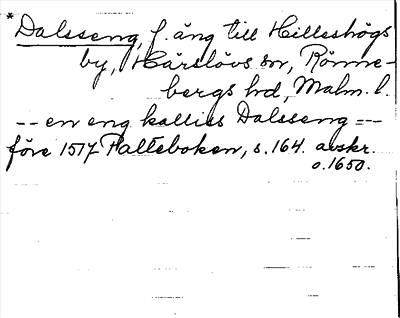 * Dalsseng, f. äng till Hilleshögs
by, Härslövs sn, Rönne-
bergs hd, Malm. l.
-- en eng kalliis Dalsseng ---
före 1517 Palteboken, s. 164. avskr.
o. 1650.